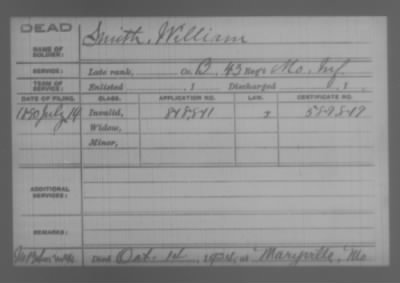 DEAD
NAME OF SOLDIER: Smith, William
SERVICE: Late rank, Co. B, 43 Reg't Mo. Inf.
TERM OF SERVICE: Enlisted , 1 Discharged , 1
DATE OF FILING. CLASS. APPLICATION NO. LAW. CERTIFICATE NO.
1890 July 14 Invalid, 848841
Widow,
Minor,
ADDITIONAL SERVICES:
REMARKS:
Died Oct. 1924, at Maryville, Mo